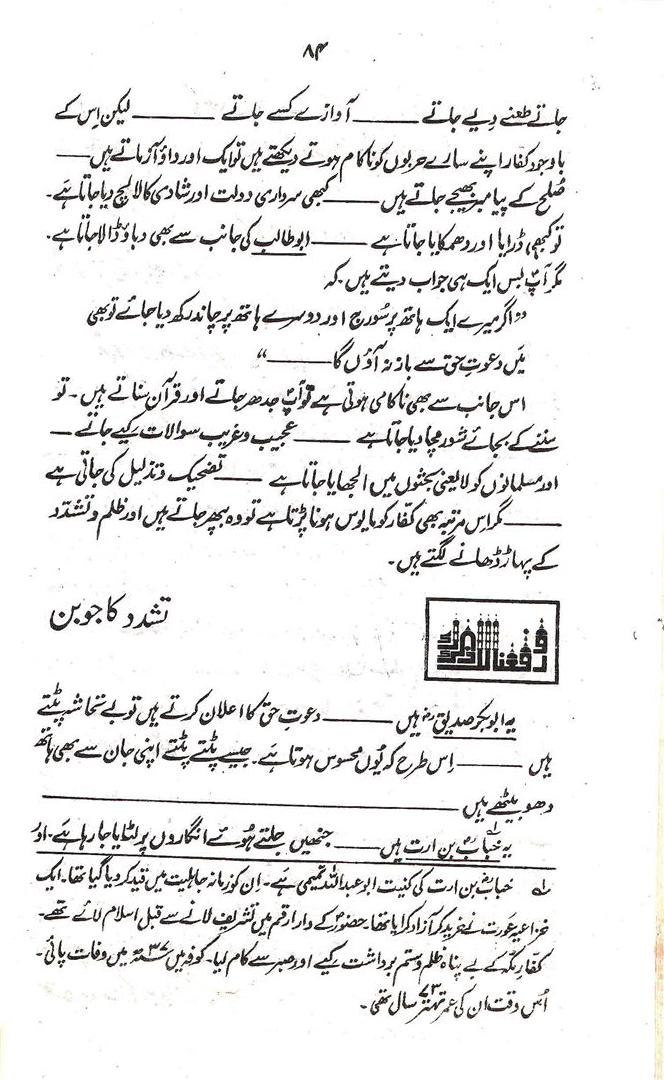 ۸۴
جاتے طعنے دیے جاتے ——— آوازے کسے جاتے ——— لیکن اِس کے
باوجود کفار اپنے سارے حربوں کو ناکام ہوتے دیکھتے ہیں تو ایک اور داؤ آزماتے ہیں ——
صُلح کے پیامبر بھیجے جاتے ہیں ——— کبھی سرداری دولت اور شادی کا لالچ دیا جاتا ہَے۔
تو کبھی ڈرایا اور دھمکایا جاتا ہے ——— ابو طالب کی جانب سے بھی دباؤ ڈالا جاتا ہے۔
مگر آپؐ بس ایک ہی جواب دیتے ہیں۔ کہ
”اگر میرے ایک ہاتھ پر سُورج اور دوسرے ہاتھ پر چاند رکھ دیا جائے تو بھی
مَیں دعوتِ حق سے باز نہ آؤں گا ———“
اس جانب سے بھی ناکامی ہوتی ہے تو آپؐ جدھر جاتے اور قرآن سناتے ہیں۔ تو
سننے کے بجائے شور مچا دیا جاتا ہے ——— عجیب و غریب سوالات رکیے جاتے —
اور مسلمانوں کو لایعنی بحثوں میں الجھایا جاتا ہے ——— تضحیک و تذلیل کی جاتی ہے
——— مگر اس مرتبہ بھی کفّار کو مایوس ہونا پڑتا ہے تو وہ بپھر جاتے ہیں اور ظلم و تشدّد
کے پہاڑ ڈھانے لگتے ہیں۔
تشدد کا جوبن
ورفعنا لک ذکرک
یہ ابوبکر صدیقؓ ہیں ——— دعوتِ حق کا اعلان کرتے ہیں تو بے تحاشہ پٹتے
ہیں ——— اِس طرح کہ یُوں محسوس ہوتا ہَے۔ جیسے پٹتے پٹتے اپنی جان سے بھی ہاتھ
دھو بیٹھے ہیں ———
یہ خبابؓ بن ارت ہیں ——— جنھیں جلتے ہُوئے انگاروں پر لٹایا جا رہا ہَے۔ اور
لہ خبابؓ بن ارت کی کنیت ابو عبداللہ تمیمی ہَے۔ اِن کو زمانہ جاہلیت میں قید کر دیا گیا تھا۔ ایک
خزاعیہ عورت نے خرید کر آزاد کرایا تھا۔ حضورؐ کے دار ارقم میں تشریف لانے سے قبل اسلام لائے تھے۔
کفّارِ مکّہ کے بے پناہ ظلم و ستم برداشت رکیے اور صبر سے کام لیا۔ کوفہ میں ۳۷ھ میں وفات پائی۔
اُس وقت ان کی عمر تہتر ۷۳ سال تھی۔